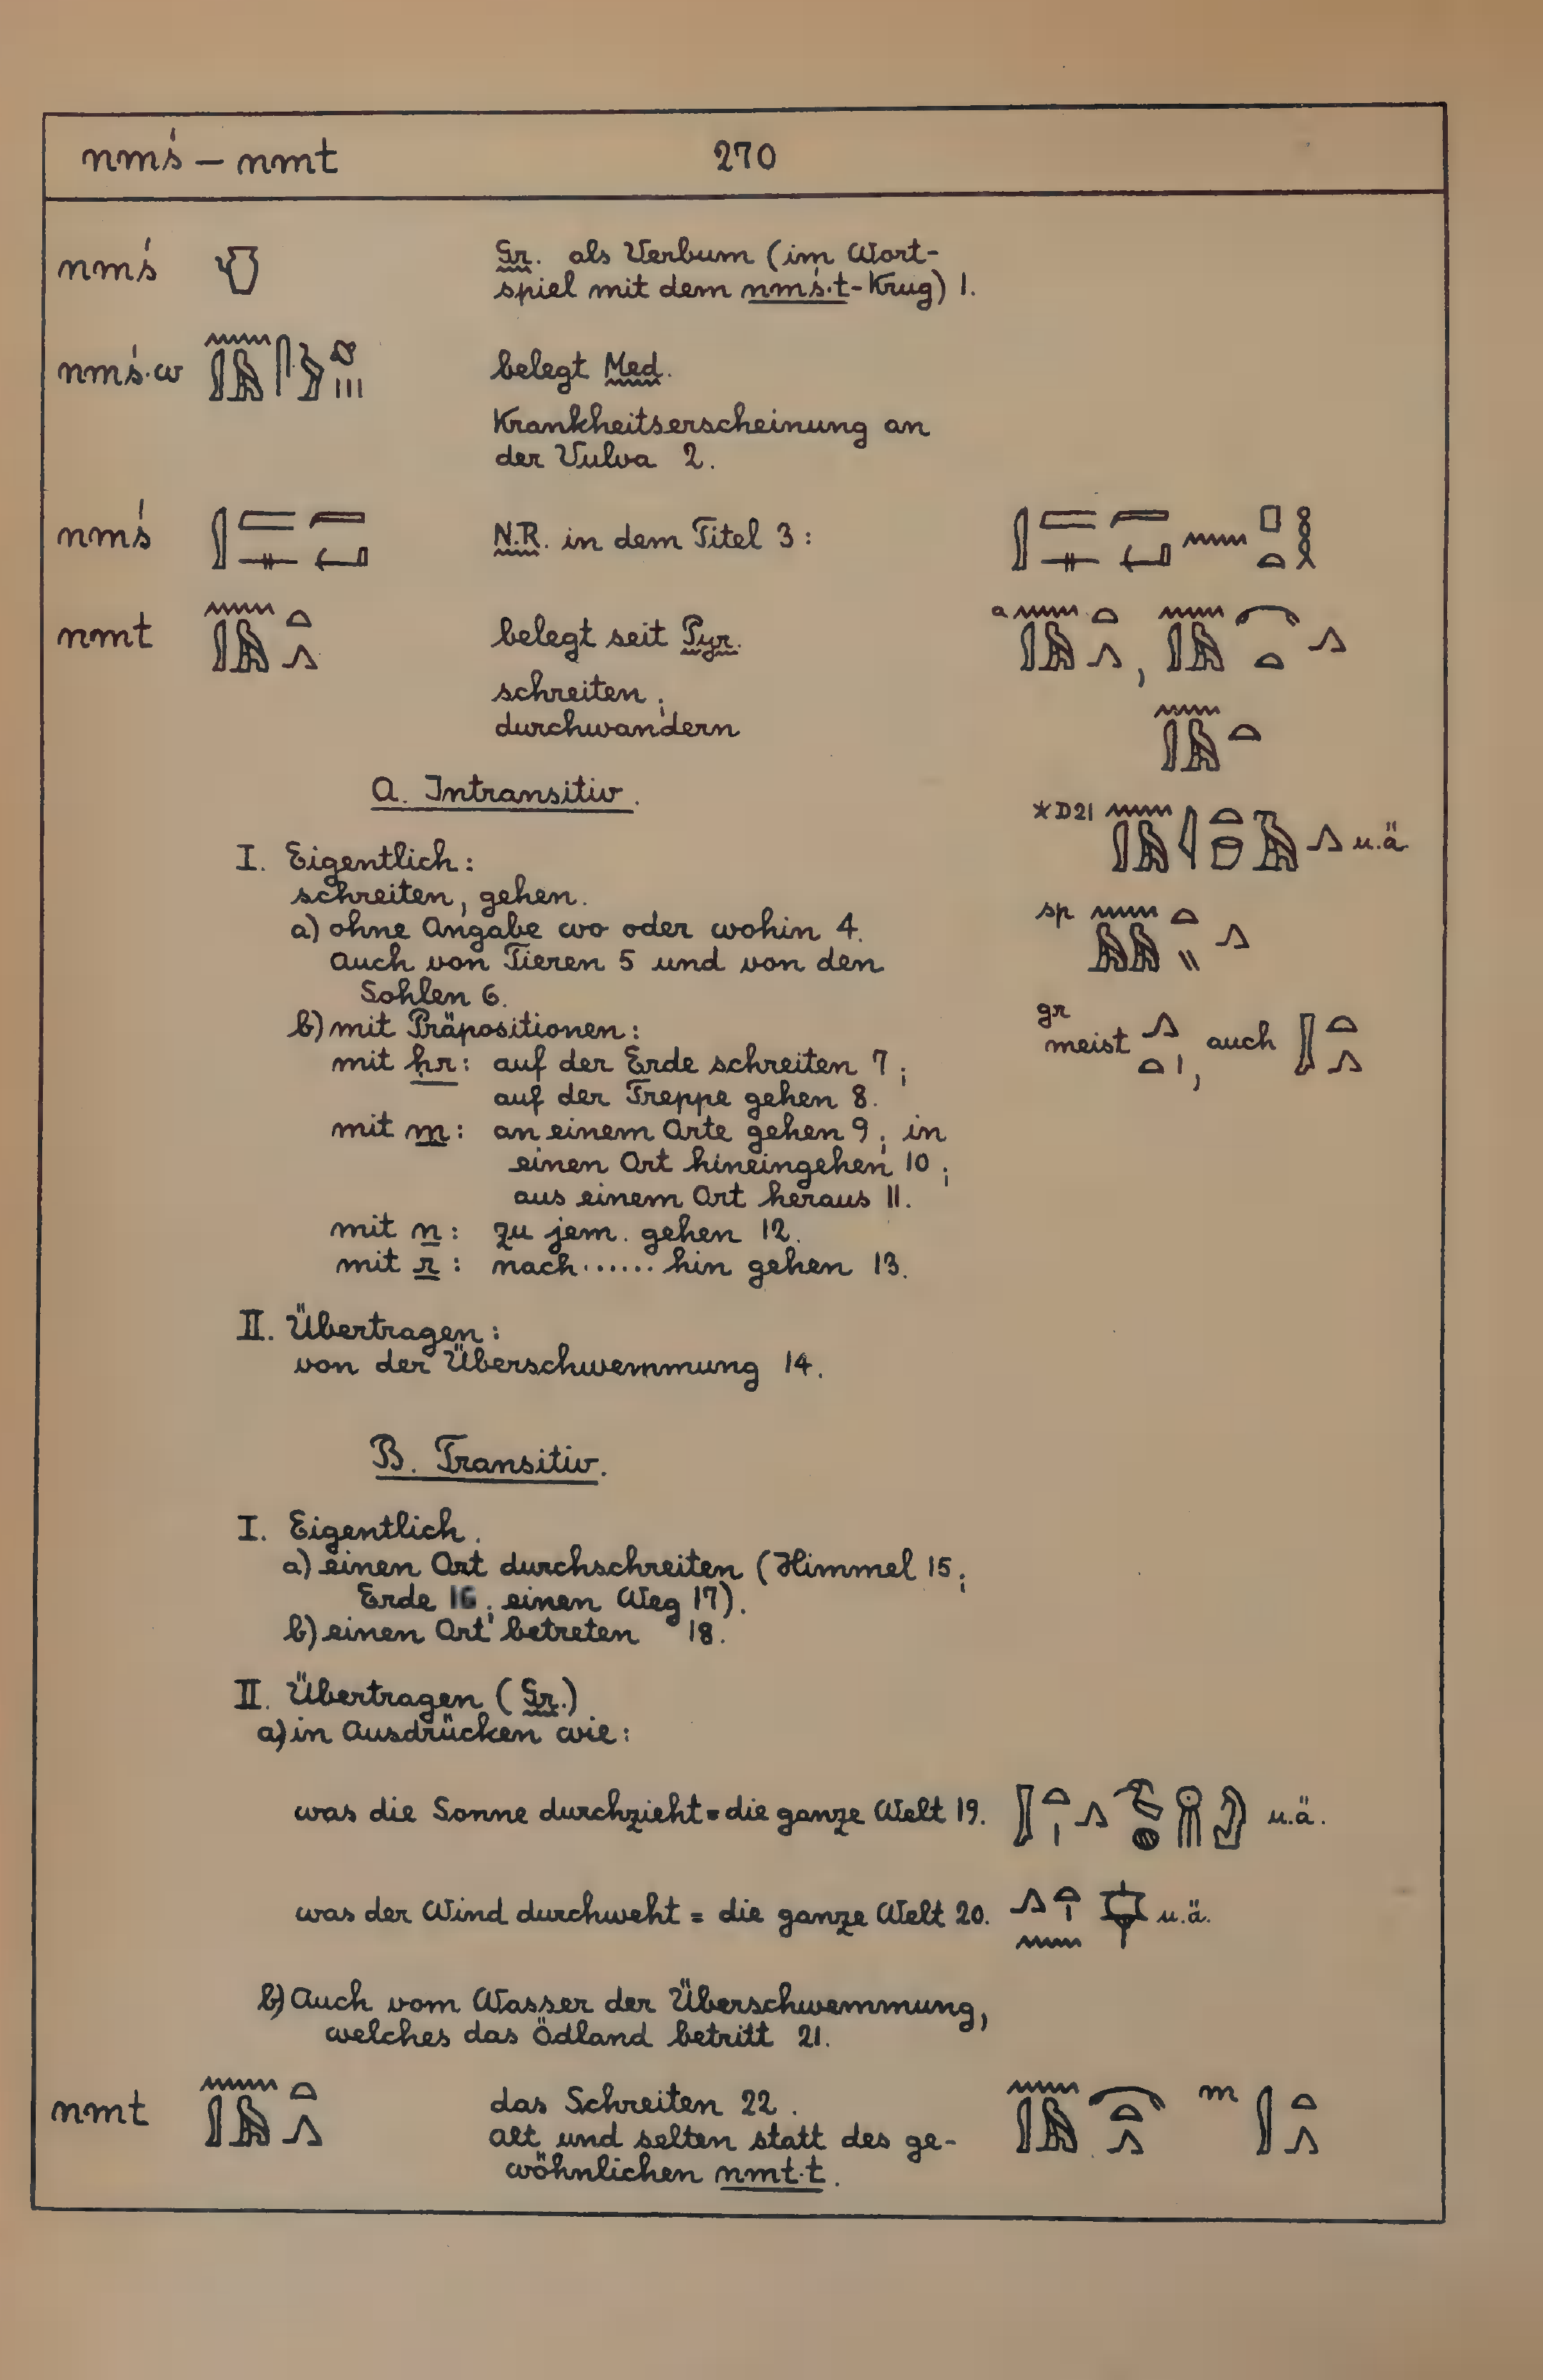 nmś – nmt 270
nmś Gr. als Verbum (im Wort-
spiel mit dem nmś·t-Krug) 1.
nmś·w belegt Med.
Krankheitserscheinung an
der Vulva 2.
nmś N.R. in dem Titel 3:
nmt belegt seit Pyr. a
schreiten;
durchwandern
A. Intransitiv.
*D21 u.ä.
I. Eigentlich:
schreiten, gehen.
a) ohne Angabe wo oder wohin 4. sp
auch von Tieren 5 und von den
Sohlen 6.
b) mit Präpositionen: gr
meist , auch
mit ḥr: auf der Erde schreiten 7;
auf der Treppe gehen 8.
mit m: an einem Orte gehen 9; in
einen Ort hineingehen 10;
aus einem Ort heraus 11.
mit n: zu jem. gehen 12.
mit r: nach ...... hin gehen 13.
II. Übertragen:
von der Überschwemmung 14.
B. Transitiv.
I. Eigentlich.
a) einen Ort durchschreiten (Himmel 15;
Erde 16; einen Weg 17).
b) einen Ort betreten 18.
II. Übertragen (Gr.)
a) in Ausdrücken wie:
was die Sonne durchzieht = die ganze Welt 19. u.ä.
was der Wind durchweht = die ganze Welt 20. u.ä.
b) Auch vom Wasser der Überschwemmung,
welches das Ödland betritt 21.
nmt das Schreiten 22. m
alt und selten statt des ge-
wöhnlichen nmt·t.